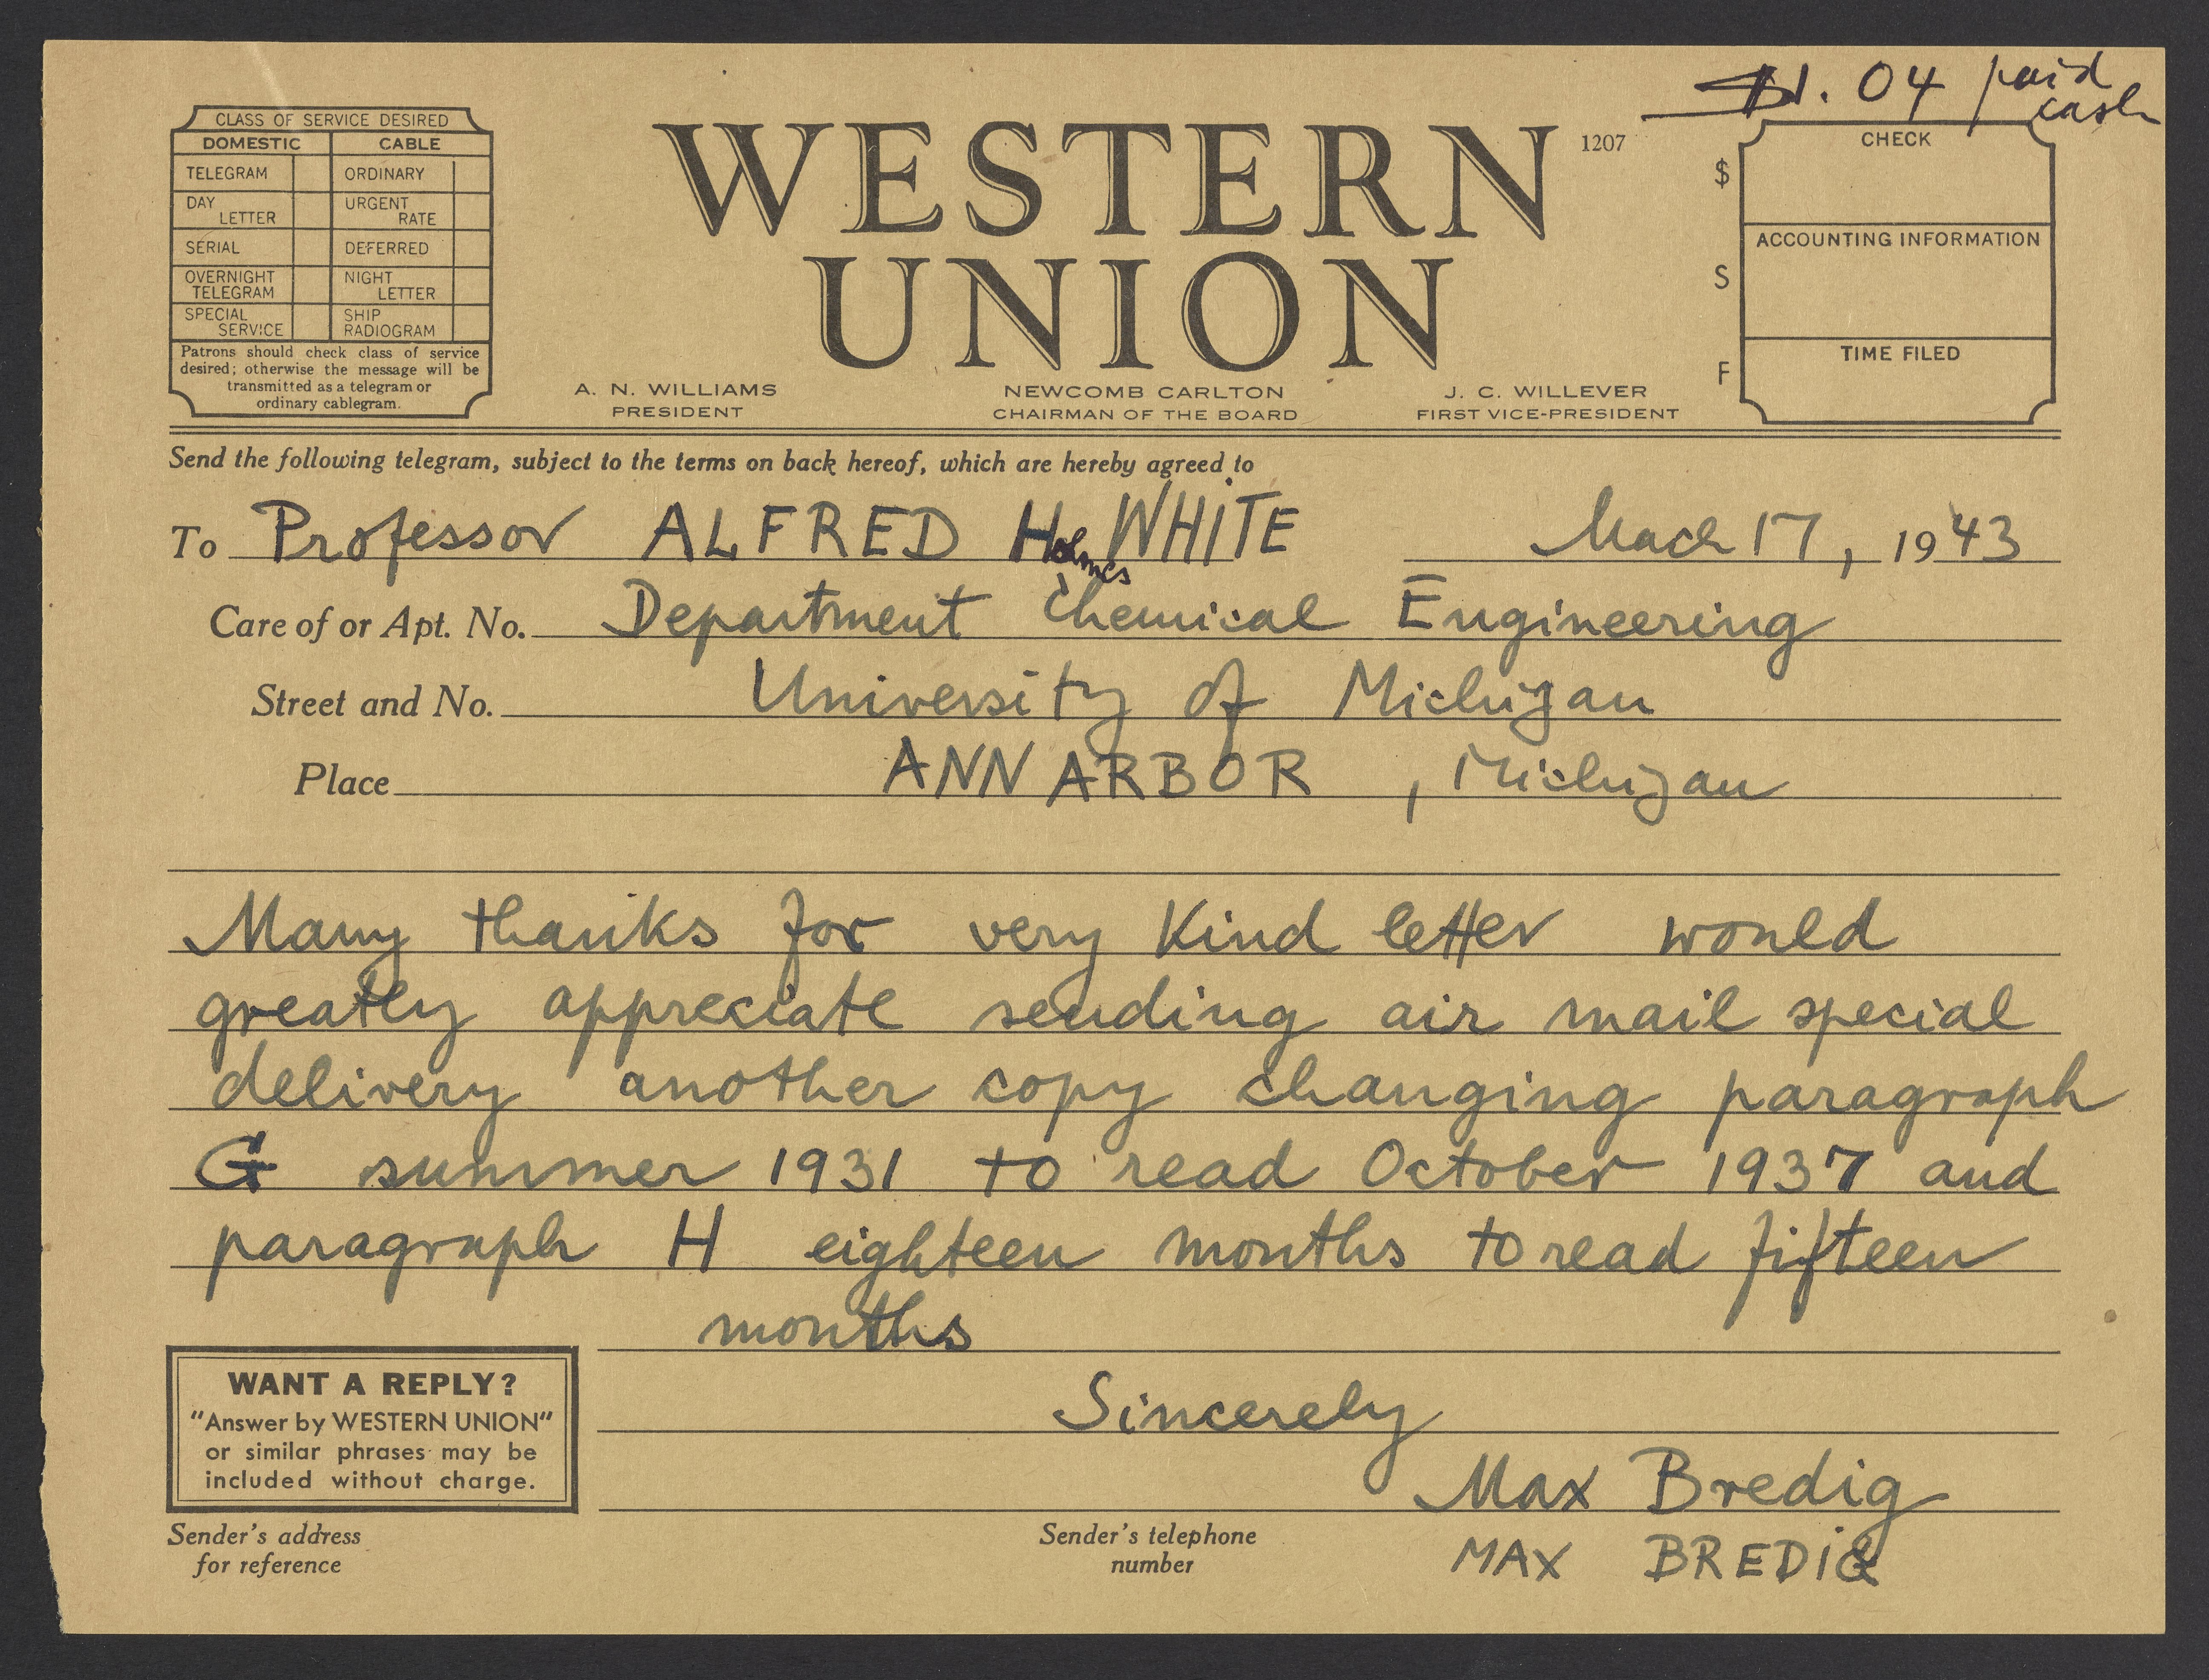 $1.04 paid
cash
CLASS OF SERVICE DESIRED
DOMESTIC CABLE
TELEGRAM ORDINARY
DAY LETTER URGENT RATE
SERIAL DEFERRED
OVERNIGHT TELEGRAM NIGHT LETTER
SPECIAL SERVICE SHIP RADIOGRAM
Patrons should check class of service
desired; otherwise the message will be
transmitted as a telegram or
ordinary cablegram.
WESTERN
UNION
1207
A. N. WILLIAMS
PRESIDENT
NEWCOMB CARLTON
CHAIRMAN OF THE BOARD
J. C. WILLEVER
FIRST VICE-PRESIDENT
$ CHECK
S ACCOUNTING INFORMATION
F TIME FILED
Send the following telegram, subject to the terms on back hereof, which are hereby agreed to
To Professor ALFRED Holmes WHITE March 17, 1943
Care of or Apt. No. Department Chemical Engineering
Street and No. University of Michigan
Place ANN ARBOR, Michigan
Many thanks for very kind letter would
greatly appreciate sending air mail special
delivery another copy changing paragraph
G summer 1931 to read October 1937 and
paragraph H eighteen months to read fifteen
months
Sincerely
Max Bredig
MAX BREDIG
WANT A REPLY?
"Answer by WESTERN UNION"
or similar phrases may be
included without charge.
Sender's address
for reference
Sender's telephone
number